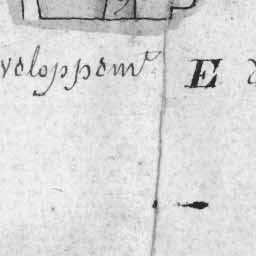 veloppemt E